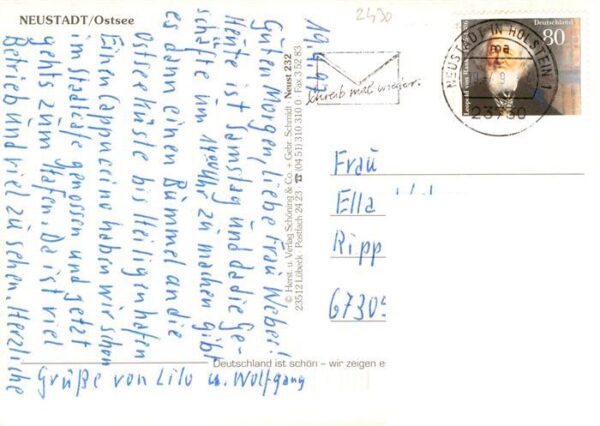 NEUSTADT/Ostsee
2430
19.4.97
Guten Morgen, liebe Frau Weber!
Heute ist Samstag und da die Ge-
schäfte um 14 Uhr zu machen gibt
es dann einen Bummel an die
Ostseeküste bis Heiligenhafen
Einen Cappuccino haben wir schon
im Stadtcafe genossen und jetzt
gehts zum Hafen. Da ist viel
Betrieb und viel zu sehen. Herzliche
Grüße von Lilo u. Wolfgang
© Herst. u. Verlag Schöning & Co. + Gebr. Schmidt · Neust 232
23512 Lübeck · Postfach 24 23 · ☎ (04 51) 310 310 0 · Fax 3 52 83
Schreib mal wieder.
NEUSTADT IN HOLSTEIN 1
ma
23730
Deutschland
80
Leopold von
Frau
Ella
Ripp
6730
Deutschland ist schön – wir zeigen e